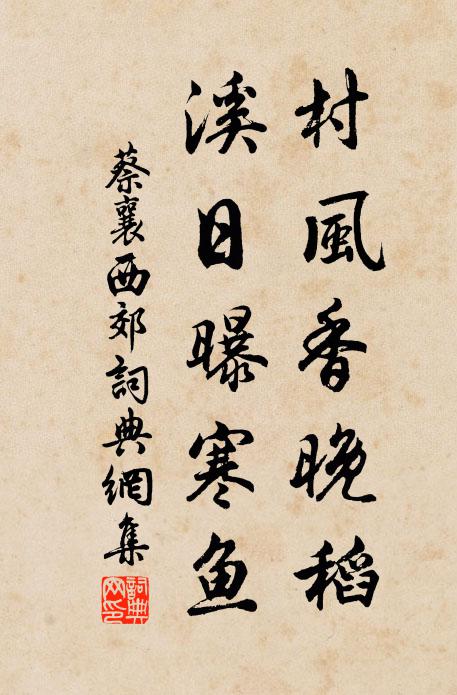 村風香晚稻
溪日曝寒魚
蔡襄西郊詞典網集
詞典網印